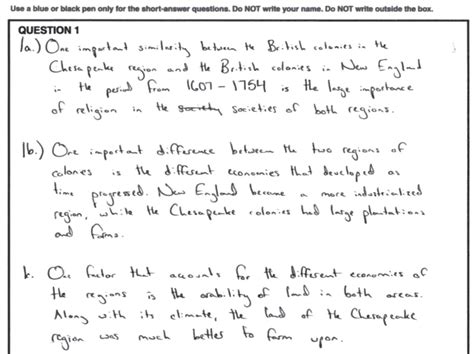 Use a blue or black pen only for the short-answer questions. Do NOT write your name. Do NOT write outside the box.
QUESTION 1
1a.) One important similarity between the British colonies in the
Chesapeake region and the British colonies in New England
in the period from 1607 - 1754 is the large importance
of religion in the society societies of both regions.
1b.) One important difference between the two regions of
colonies is the different economies that developed as
time progressed. New England became a more industrialized
region, while the Chesapeake colonies had large plantations
and farms.
1c. One factor that accounts for the different economies of
the regions is the arability of land in both areas.
Along with its climate, the land of the Chesapeake
region was much better to farm upon.